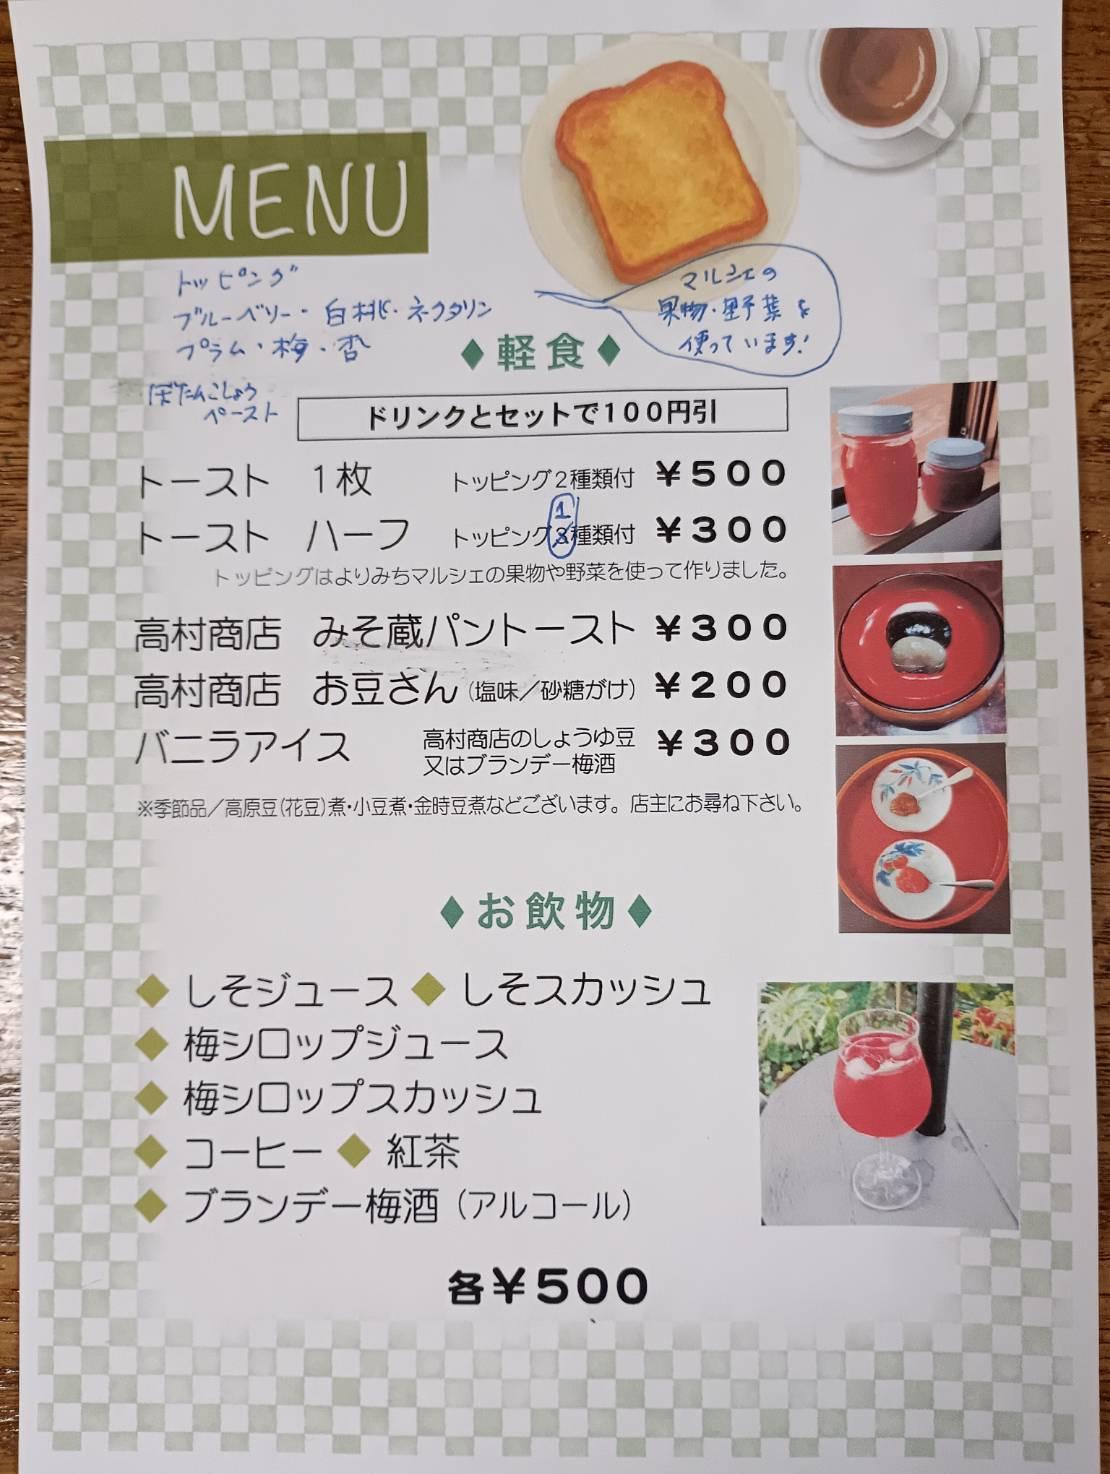 MENU
トッピング
ブルーベリー・白桃・ネクタリン
プラム・梅・杏
ぼたんこしょう
ペースト
マルシェの
果物・野菜を
使っています!
♦軽食♦
ドリンクとセットで100円引
トースト 1枚 トッピング2種類付 ¥500
トースト ハーフ トッピング1種類付 ¥300
トッピングはよりみちマルシェの果物や野菜を使って作りました。
高村商店 みそ蔵パントースト ¥300
高村商店 お豆さん(塩味/砂糖がけ) ¥200
バニラアイス 高村商店のしょうゆ豆 又はブランデー梅酒 ¥300
※季節品/高原豆(花豆)煮・小豆煮・金時豆煮などございます。店主にお尋ね下さい。
♦お飲物♦
◆しそジュース◆しそスカッシュ
◆梅シロップジュース
◆梅シロップスカッシュ
◆コーヒー◆紅茶
◆ブランデー梅酒(アルコール)
各¥500